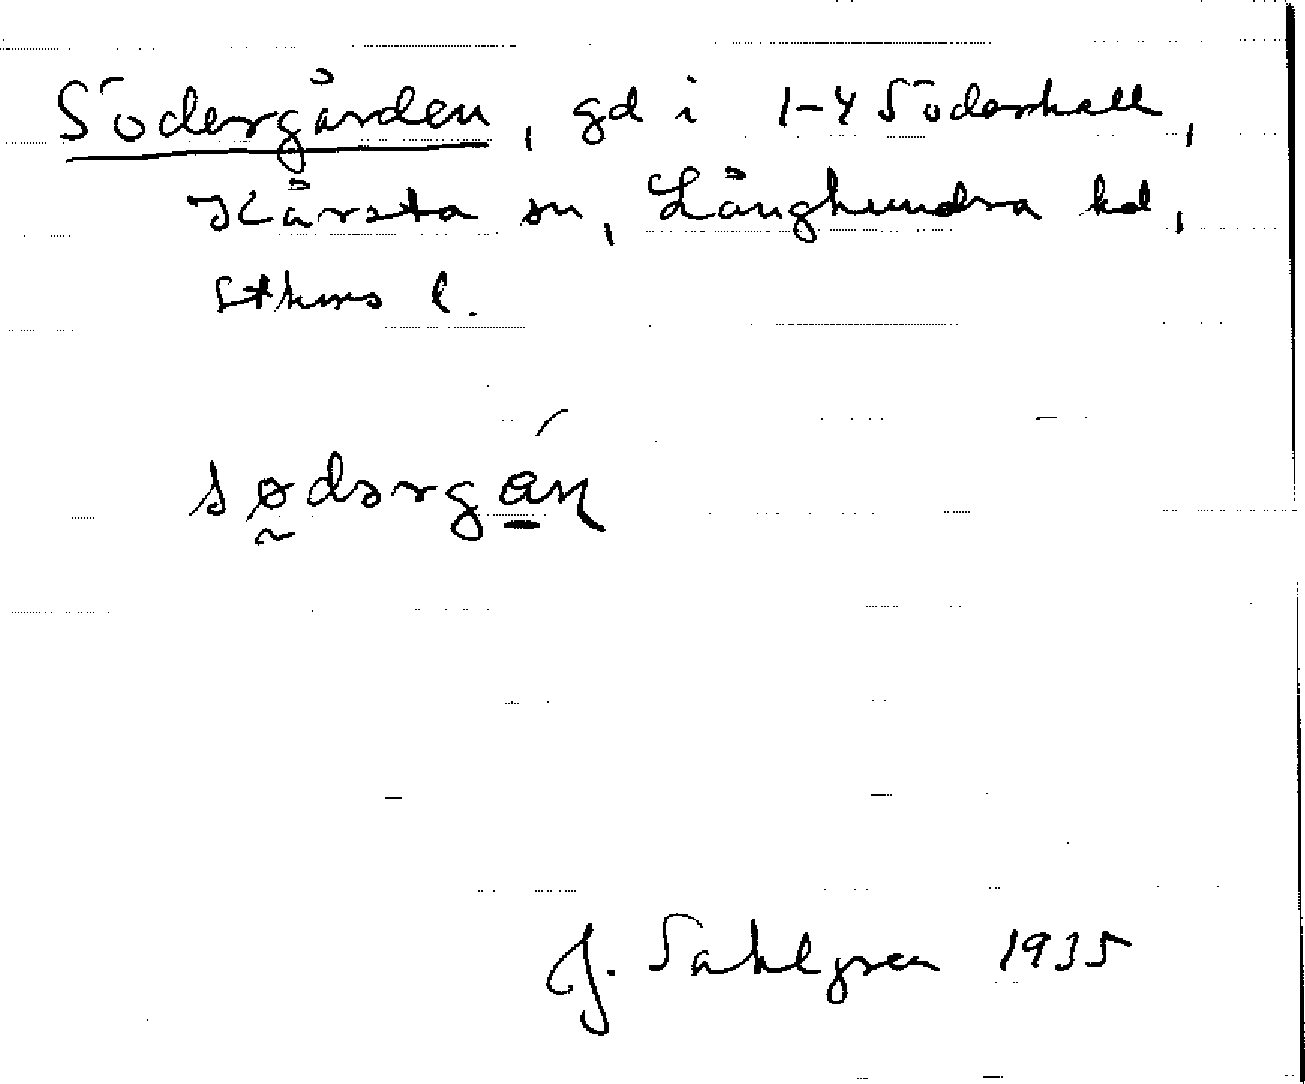 Södergården, gd i 1-4 Söderhall,
Kårsta sn, Långhundra hd,
Sthms l.
sødərgáɳ
J. Sahlgren 1935